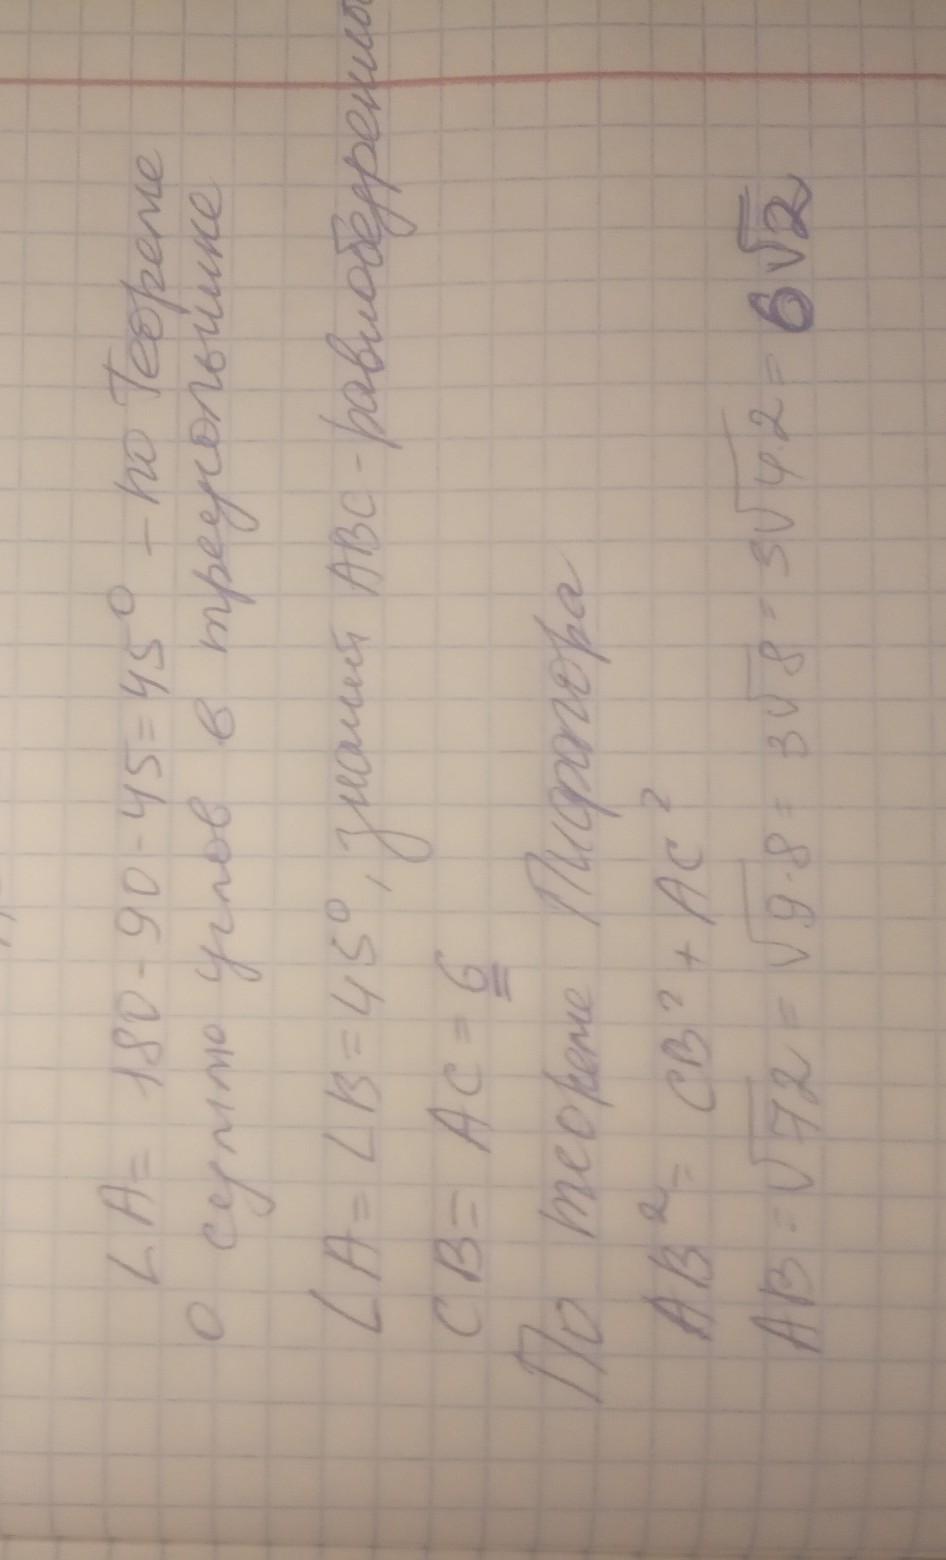 ∠A = 180 - 90 - 45 = 45° - по Теореме
о сумме углов в треугольнике
∠A = ∠B = 45°, значит ABC - равнобедренный
CB = AC = 6
По теореме Пифагора
AB² = CB² + AC²
AB = √72 = √9·8 = 3√8 = 3√4·2 = 6√2